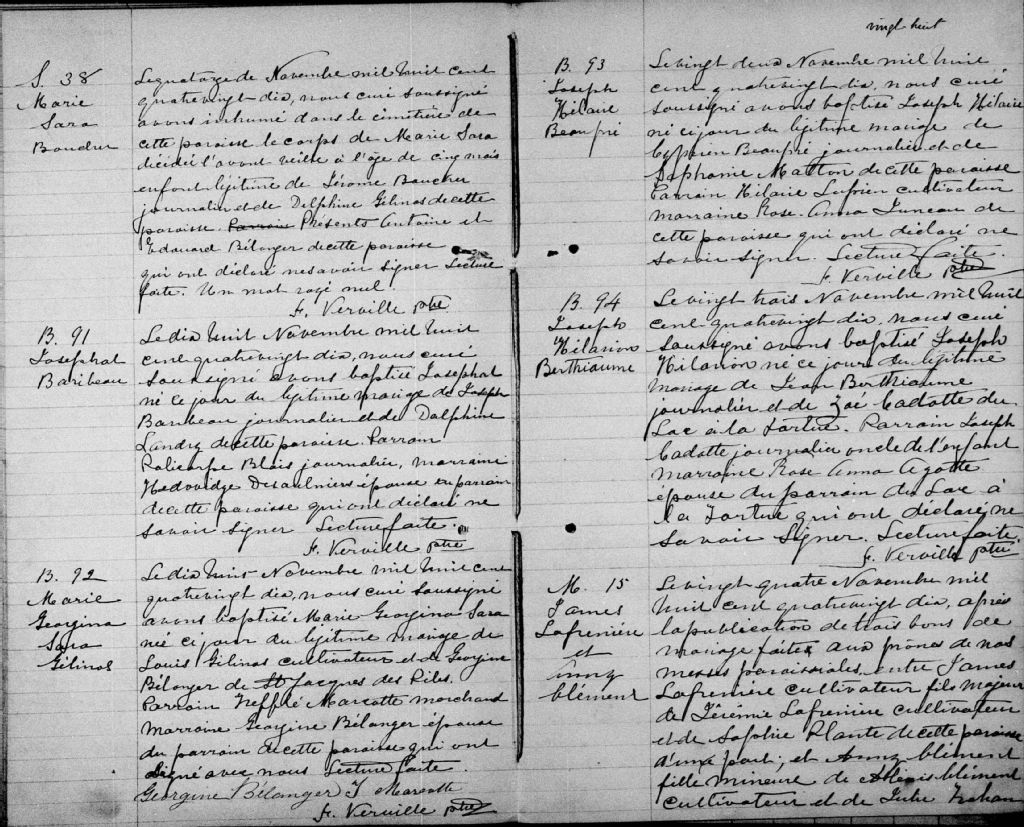 vingt huit
S. 38
Marie
Sara
Boucher
Le quatorze de Novembre mil huit cent
quatrevingt dix, nous curé soussigné
avons inhumé dans le cimitière de
cette paroisse le corps de Marie Sara
décidée l'avant veille à l'âge de cinq mois
enfant légitime de Jérome Boucher
journalier et de Delphine Gélinas de cette
paroisse. Parrain Présents Antoine et
Edouard Bélanger de cette paroisse
qui ont déclaré ne savoir signer Lecture
faite. Un mot rayé nul.
F. Verville ptre
B. 91
Josephat
Baribeau
Le dix huit Novembre mil huit
cent quatrevingt dix, nous curé
soussigné avons baptisé Josephat
né ce jour du légitime mariage de Joseph
Baribeau journalier et de Dalphine
Landry de cette paroisse. Parrain
Policarpe Blais journalier, marraine
Hedwidge Desaulniers épouse du parrain
de cette paroisse qui ont déclaré ne
savoir signer Lecture faite.
F. Verville ptre
B. 92
Marie
Georgina
Sara
Gélinas
Le dix huit Novembre mil huit cent
quatrevingt dix, nous curé soussigné
avons baptisé Marie Georgina Sara
née ce jour du légitime mariage de
Louis Gélinas cultivateur et de Georgine
Bélanger de St Jacques des Piles.
Parrain Trefflé Marcotte marchand
Marraine Georgine Bélanger épouse
du parrain de cette paroisse qui ont
signé avec nous Lecture faite.
Georgine Bélanger T Marcotte
F. Verville ptre
B. 93
Joseph
Hilaire
Beaupré
Le vingt deux Novembre mil huit
cent quatrevingt dix, nous curé
soussigné avons baptisé Joseph Hilaire
né ce jour du légitime mariage de
Cyprien Beaupré journalier et de
Sephanie Matton de cette paroisse
Parrain Hilaire Lufrien cultivateur
marraine Rose-Anna Juneau de
cette paroisse qui ont déclaré ne
savoir signer. Lecture faite.
F. Verville ptre
B. 94
Joseph
Hilarion
Berthiaume
Le vingt trois Novembre mil huit
cent quatrevingt dix, nous curé
soussigné avons baptisé Joseph
Hilarion né ce jour du légitime
mariage de Jean Berthiaume
journalier et de Zoé Cadotte du
Lac à la Tortue. Parrain Joseph
Cadotte journalier oncle de l'enfant
marraine Rose Anna Ayotte
épouse du parrain du Lac à
la Tortue qui ont déclaré ne
savoir signer. Lecture faite.
F. Verville ptre
M. 15
James
Lafrenière
et
Anny
Clément
Le vingt quatre Novembre mil
huit cent quatrevingt dix, après
la publication de trois bans de
mariage faite aux prônes de nos
messes paroissiales, entre James
Lafrenière cultivateur fils majeur
de Jérémie Lafrenière cultivateur
et de Sophie Plante de cette paroisse
d'une part; et Anny Clément
fille mineure de Alexis Clément
cultivateur et de Julie